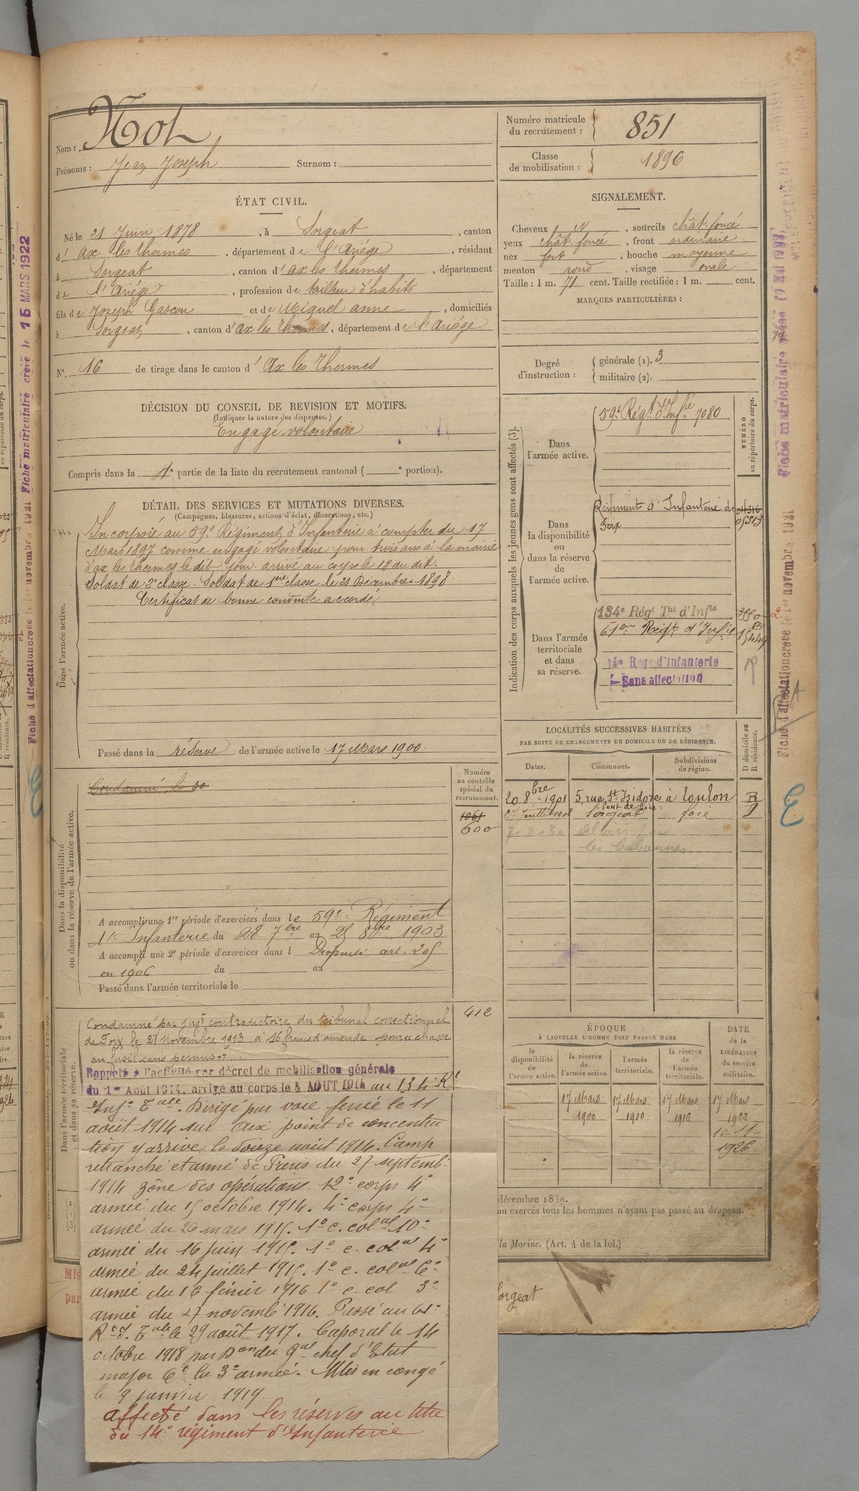 Nom : Not
Prénoms : Jean Joseph Surnom :
Numéro matricule du recrutement : 851
Classe de mobilisation : 1896
ÉTAT CIVIL.
Né le 21 Juin 1878, à Sorgeat, canton
d'Ax les thermes, département de l'Ariège, résidant
à Sorgeat, canton d'ax les thermes, département
de l'Ariège, profession de tailleur d'habits
fils de Joseph Gascou et de Miquel anne, domiciliés
à Sorgeat, canton d'ax les thermes, département de l'ariège
N° 16 de tirage dans le canton d'Ax les Thermes
SIGNALEMENT.
Cheveux N, sourcils chât foncé
yeux chât foncé, front ordinaire
nez fort, bouche moyenne
menton rond, visage ovale
Taille : 1 m. 71 cent. Taille rectifiée : 1 m. cent.
MARQUES PARTICULIÈRES :
Degré d'instruction : générale (1). 3
militaire (2).
DÉCISION DU CONSEIL DE REVISION ET MOTIFS.
(Indiquer la nature des dispenses.)
Engagé volontaire
Compris dans la 4e partie de la liste du recrutement cantonal ( e portion).
DÉTAIL DES SERVICES ET MUTATIONS DIVERSES.
(Campagnes, blessures, actions d'éclat, décorations, etc.)
Dans l'armée active.
Incorporé au 59e Régiment d'Infanterie à compter du 17
Mars 1897 comme engagé volontaire pour trois ans à la mairie
d'ax les thermes le dit jour. arrivé au corps le 18 du dit.
Soldat de 2e classe. Soldat de 1ère classe le 28 Décembre 1898
Certificat de bonne conduite accordé
Passé dans la réserve de l'armée active le 17 Mars 1900.
Dans la disponibilité ou dans la réserve de l'armée active.
Numéro au contrôle spécial du recrutement.
Condamné le 30
1061
600
A accompli une 1re période d'exercices dans le 59e Régiment
d'Infanterie du 28 7bre au 25 8bre 1903
A accompli une 2e période d'exercices dans l Dispensé art. 205
en 1906 du au
Passé dans l'armée territoriale le
Dans l'armée territoriale et dans sa réserve.
412
Condamné par jugt contradictoire du tribunal correctionnel
de Foix le 27 novembre 1913 à 16 francs d'amende pour chasse
au fusil sans permis.
Rappelé à l'activité par décret de mobilisation générale
du 1er Août 1914, arrivé au corps le 4 AOUT 1914 au 134e Rt
Infie Tale. Dirigé par voie ferrée le 11
août 1914 sur Aux point de concentra
tion y arrive le douze août 1914. Camp
retranché et armé de Paris du 27 septemb.
1914 zône des opérations 12e corps 4e
armée du 15 octobre 1914. 4e corps 4e
armée du 26 mars 1915. 1er c. colal 10e
armée du 16 juin 1915. 1er c. colal 4e
armée du 24 juillet 1915. 1er c. colal 6e
armée du 16 février 1916 1er c. col 3e
armée du 27 novemb 1916. Passé au 61e
R.I. Tale le 29 août 1917. Caporal le 14
octobre 1918 par don du gal chef d'Etat
major Ct la 3e armée. Mis en congé
le 9 janvier 1919.
affecté dans les réserves au titre
du 14e régiment d'Infanterie
Indication des corps auxquels les jeunes gens sont affectés (3).
NUMÉRO au répertoire du corps.
Dans l'armée active.
59e Régt d'Infie 7080
Dans la disponibilité ou dans la réserve de l'armée active.
Régiment d'Infanterie de
Foix
Dans l'armée territoriale et dans sa réserve.
134e Régt Tal d'Infie
61e Régt d'Infie
14e Régt d'Infanterie
Sans affectation
LOCALITÉS SUCCESSIVES HABITÉES
PAR SUITE DE CHANGEMENTS DE DOMICILE OU DE RÉSIDENCE.
Dates. Communes. Subdivisions de région. D domicile ou R résidence.
20 8bre 1901 5, rue St Isidore à Toulon R
Sorgeat foix D
les Cabannes
ÉPOQUE
À LAQUELLE L'HOMME DOIT PASSER DANS
la disponibilité de l'armée active. la réserve de l'armée active. l'armée territoriale. la réserve de l'armée territoriale.
DATE de la LIBÉRATION du service militaire.
17 Mars 1900 17 Mars 1910 17 Mars 1916 17 Mars 1922
10-11-1926.
décembre 1889.
on exercés tous les hommes n'ayant pas passé au drapeau.
la Marine. (Art. 4 de la loi.)
Sorgeat
Fiche matriculaire créée le 15 MARS 1922
Fiche d'affectation créée le 1er novembre 1921
Fiche matriculaire créée
Fiche d'affectation créée le 1er novembre 1921